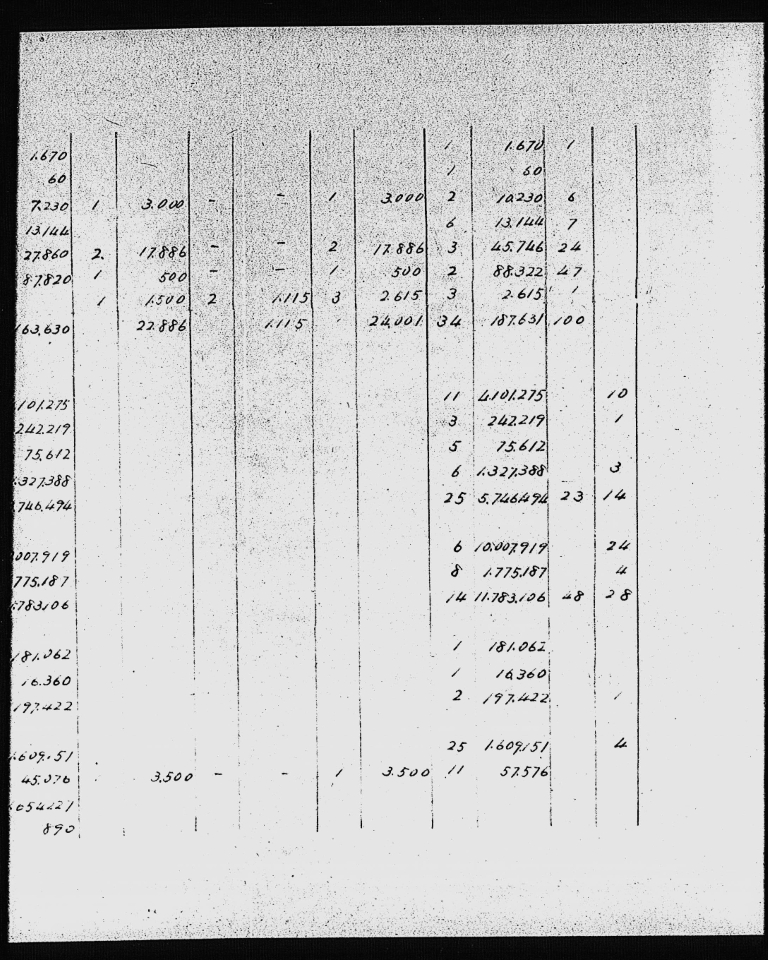 1.670 1 1.670 1
60 1 60
7.230 1 3.000 - - 1 3.000 2 10.230 6
13.144 6 13.144 7
27.860 2. 17.886 - - 2 17.886 3 45.746 24
87.820 1 500 - - 1 500 2 88.322 47
1 1.500 2 1.115 3 2.615 3 2.615 1
163.630 22.886 1.115 24.001 34 187.631 100
101.275 11 4.101.275 10
242.219 3 242.219 1
75.612 5 75.612
.327.388 6 1.327.388 3
.746.494 25 5.746.494 23 14
007.919 6 10.007.919 24
775.187 8 1.775.187 4
.783.106 14 11.783.106 48 28
181.062 1 181.062
16.360 1 16.360
197.422 2 197.422 1
.609.151 25 1.609.151 4
45.076 3.500 - - 1 3.500 11 57.576
890